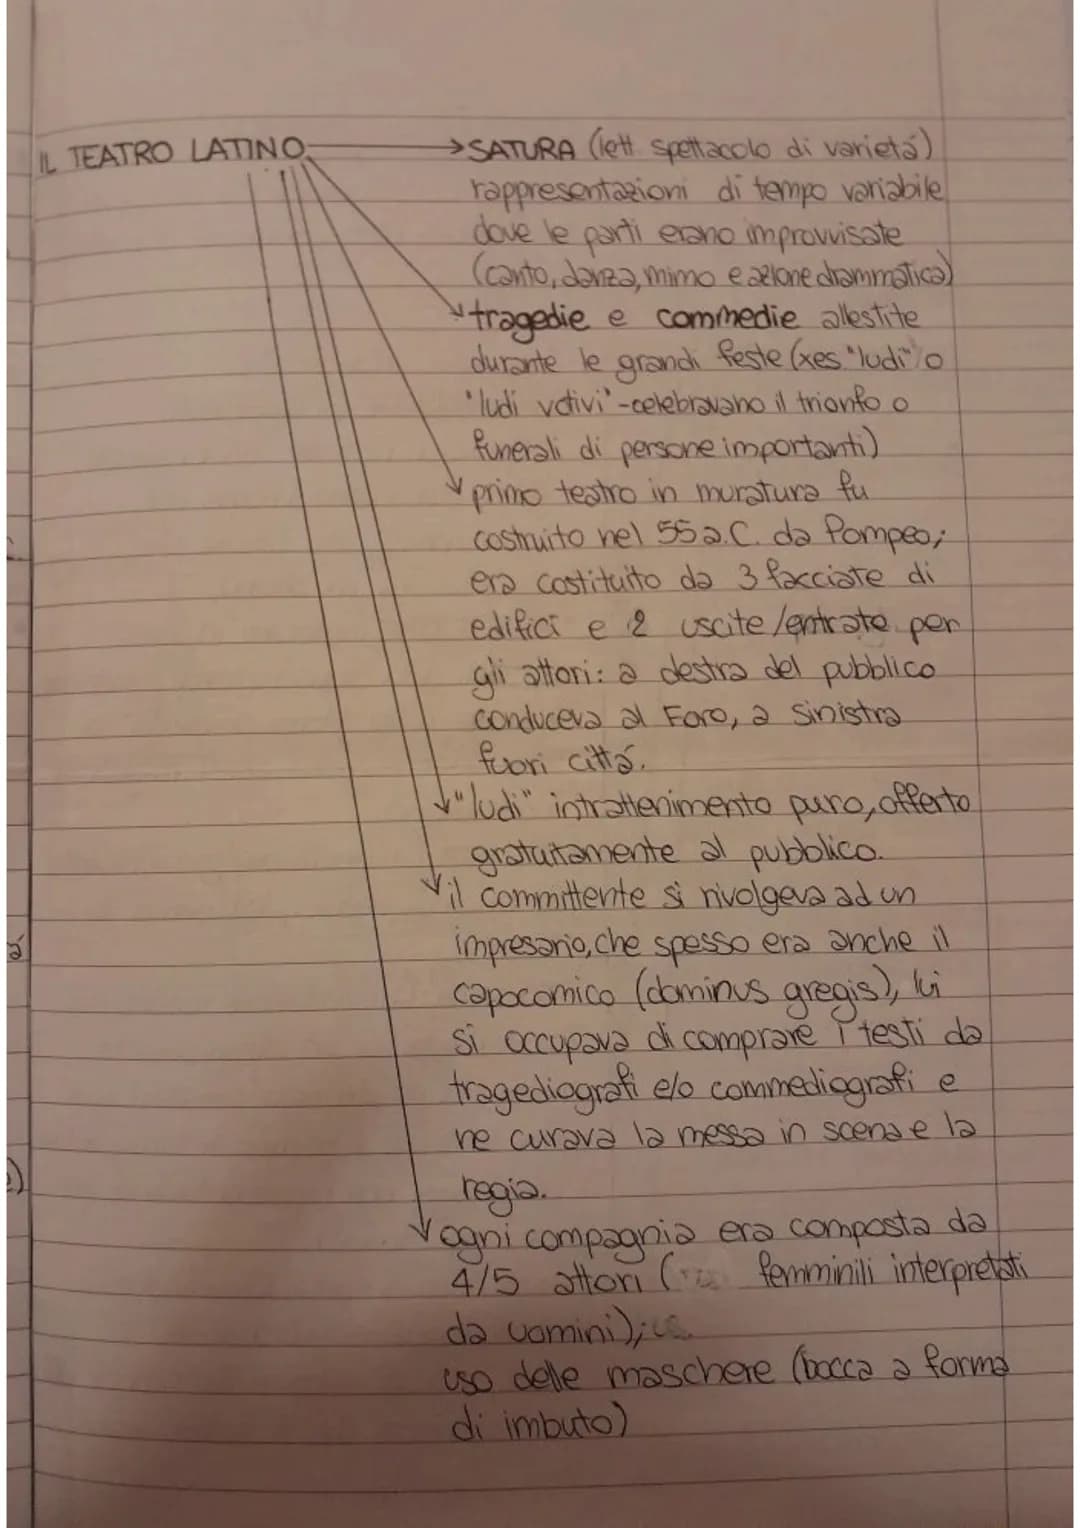 IL TEATRO LATINO → SATURA (lett. spettacolo di varietà)
rappresentazioni di tempo variabile
dove le parti erano improvvisate
(canto, danza, mimo e azione drammatica)
tragedie e commedie allestite
durante le grandi feste (xes "ludi" o
"ludi votivi" - celebravano il trionfo o
funerali di persone importanti)
primo teatro in muratura fu
costruito nel 55 a.C. da Pompeo;
era costituito da 3 facciate di
edifici e 2 uscite/entrate per
gli attori: a destra del pubblico
conduceva al Foro, a sinistra
fuori città.
"ludi" intrattenimento puro, offerto
gratuitamente al pubblico.
il committente si rivolgeva ad un
impresario, che spesso era anche il
capocomico (dominus gregis), lui
si occupava di comprare i testi da
tragediografi e/o commediografi e
ne curava la messa in scena e la
regia.
ogni compagnia era composta da
4/5 attori ( femminili interpretati
da uomini);
uso delle maschere (bocca a forma
di imbuto)